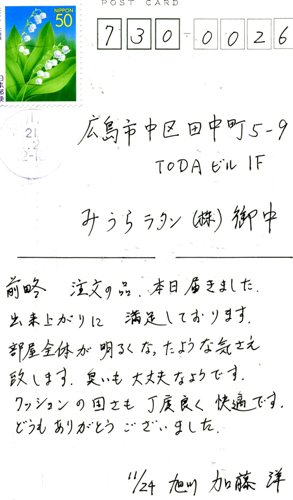 POST CARD
NIPPON
50
日本郵便
730-0026
広島市中区田中町5-9
TODAビル 1F
みうらラタン(株)御中
前略 注文の品、本日届きました。
出来上がりに 満足しております。
部屋全体が 明るくなったような気さえ
致します。臭いも大丈夫なようです。
クッションの固さも 丁度良く 快適です。
どうもありがとう ございました。
11/24 旭川 加藤 洋